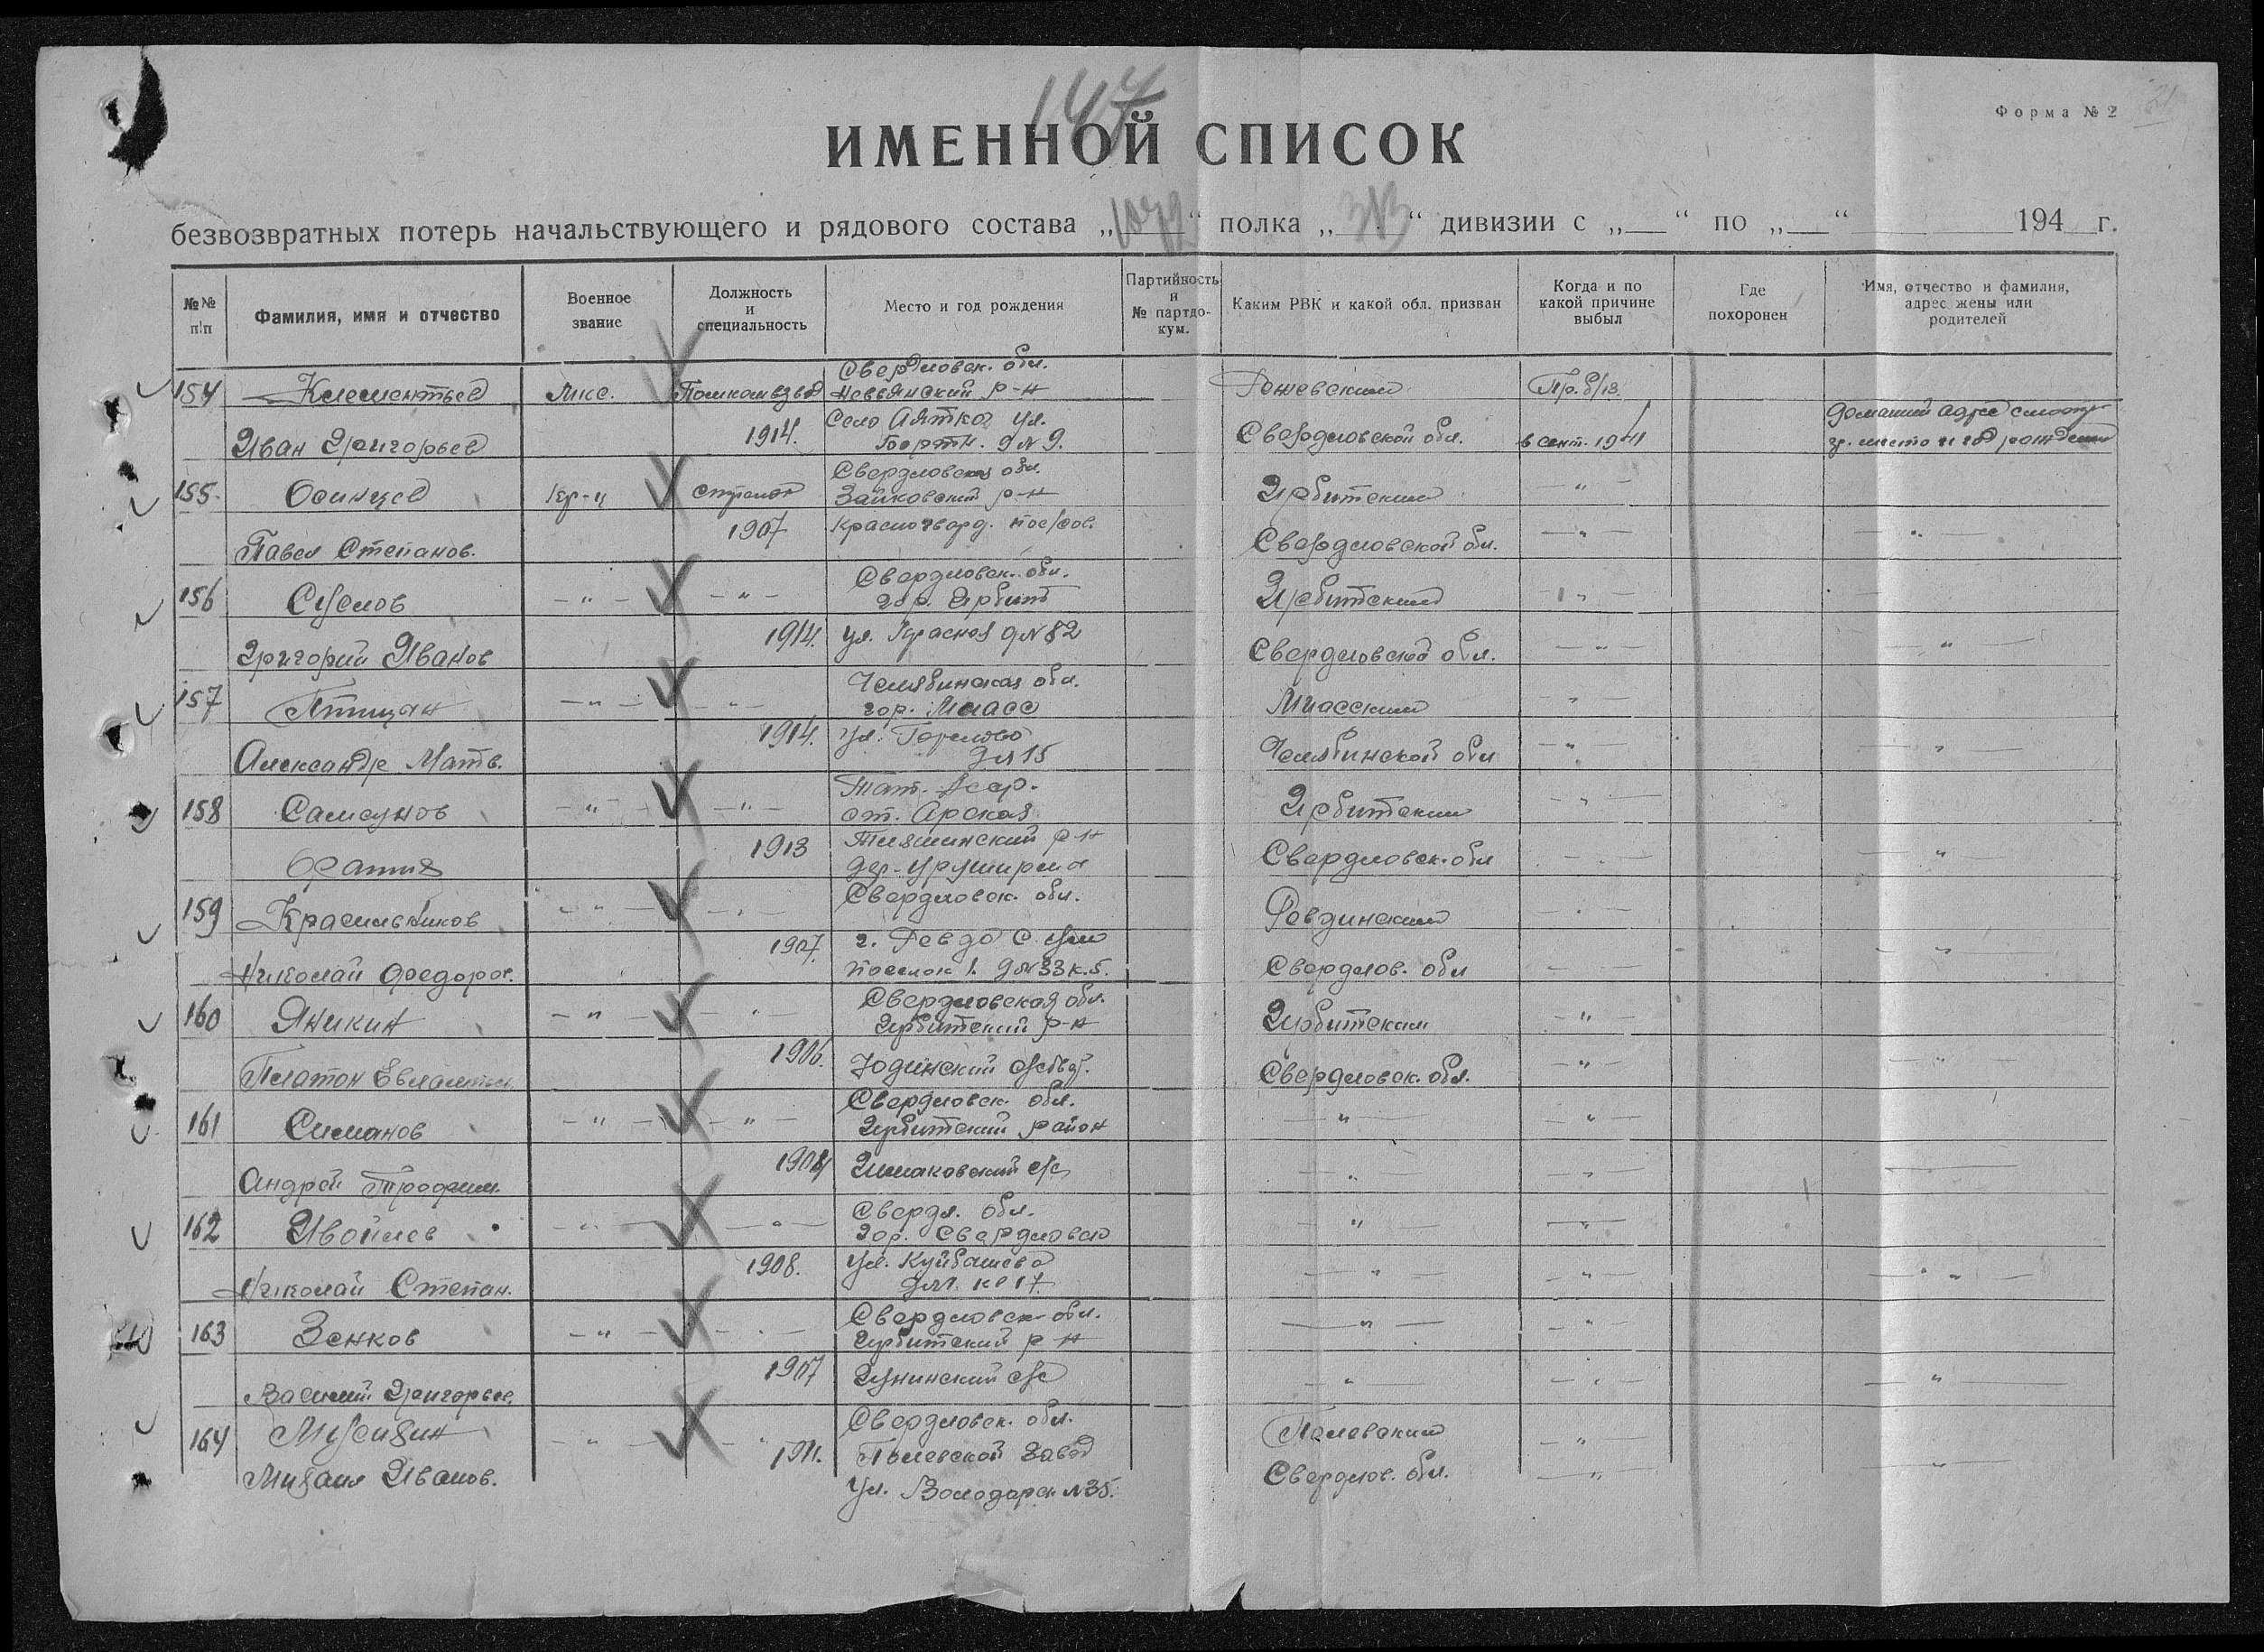 147
Форма № 2
ИМЕННОЙ СПИСОК
безвозвратных потерь начальствующего и рядового состава „1079“ полка „313“ дивизии с „ “ по „ “ 194 г.
№№ п/п
Фамилия, имя и отчество
Военное звание
Должность и специальность
Место и год рождения
Партийность и № партдокум.
Каким РВК и какой обл. призван
Когда и по какой причине выбыл
Где похоронен
Имя, отчество и фамилия, адрес жены или родителей
Свердловск. обл.
154 Клементьев Мкс. Помкомвзвод Невьянский р-н Режевским Пр. б/в
Село Аятка ул. домашний адрес смотр.
Иван Григорьев 1914. дN9. Свердловской обл. в сент. 1941 гр. место и год рождения
Свердловская обл.
155 Осинцев кр-ц стрелок Зайковский р-н Ирбитским — " —
1907 Красногвард. пос/сов.
Павел Степанов. Свердловской обл. — " — — " —
Свердловск. обл.
156 Суслов — " — — " — гор. Ирбит Ирбитским — " —
1914. ул. Красная дN82 — " —
Григорий Иванов Свердловской обл. — " —
Челябинская обл.
157 Птицын — " — — " — гор. Миасс Миасским — " —
1914. ул. Горького
Александр Матв. дN15 Челябинской обл — " — — " —
Тат. Асср.
158 Самсунов — " — — " — ст. Арская Ирбитским — " —
1913 р-н
дер. Свердловск. обл — " — — " —
Свердловск. обл.
159 Красильников — " — — " — Ревдинским — " —
1907. г. Ревда — " —
Николай Федоров. поселок 1. дN33 к.5. Свердлов. обл — " —
Свердловская обл.
160 Аникин — " — — " — Ирбитский р-н Ирбитским — " —
1906.
Платон Евлампьев. Юдинский сельсов. Свердловск. обл. — " — — " —
Свердловск. обл.
161 Симанов — " — — " — Ирбитский район — " — — " —
1908
Андрей Трофим. с/с — " — — " —
Свердл. обл.
162 Ивойлев — " — — " — гор. Свердловск — " — — " —
1908. ул. Куйбышева
Николай Степан. кв 17. — " — — " — — " —
Свердловск. обл.
163 Зенков — " — — " — Ирбитский р-н — " — — " —
1907 Гунинский с/с
Василий Григорьев. — " — — " — — " —
Свердловск. обл.
164 Мусихин — " — — " — Полевским — " —
1911. Полевской завод
Михаил Иванов. Свердлов. обл. — " — — " —
Ул. Володарск N35.